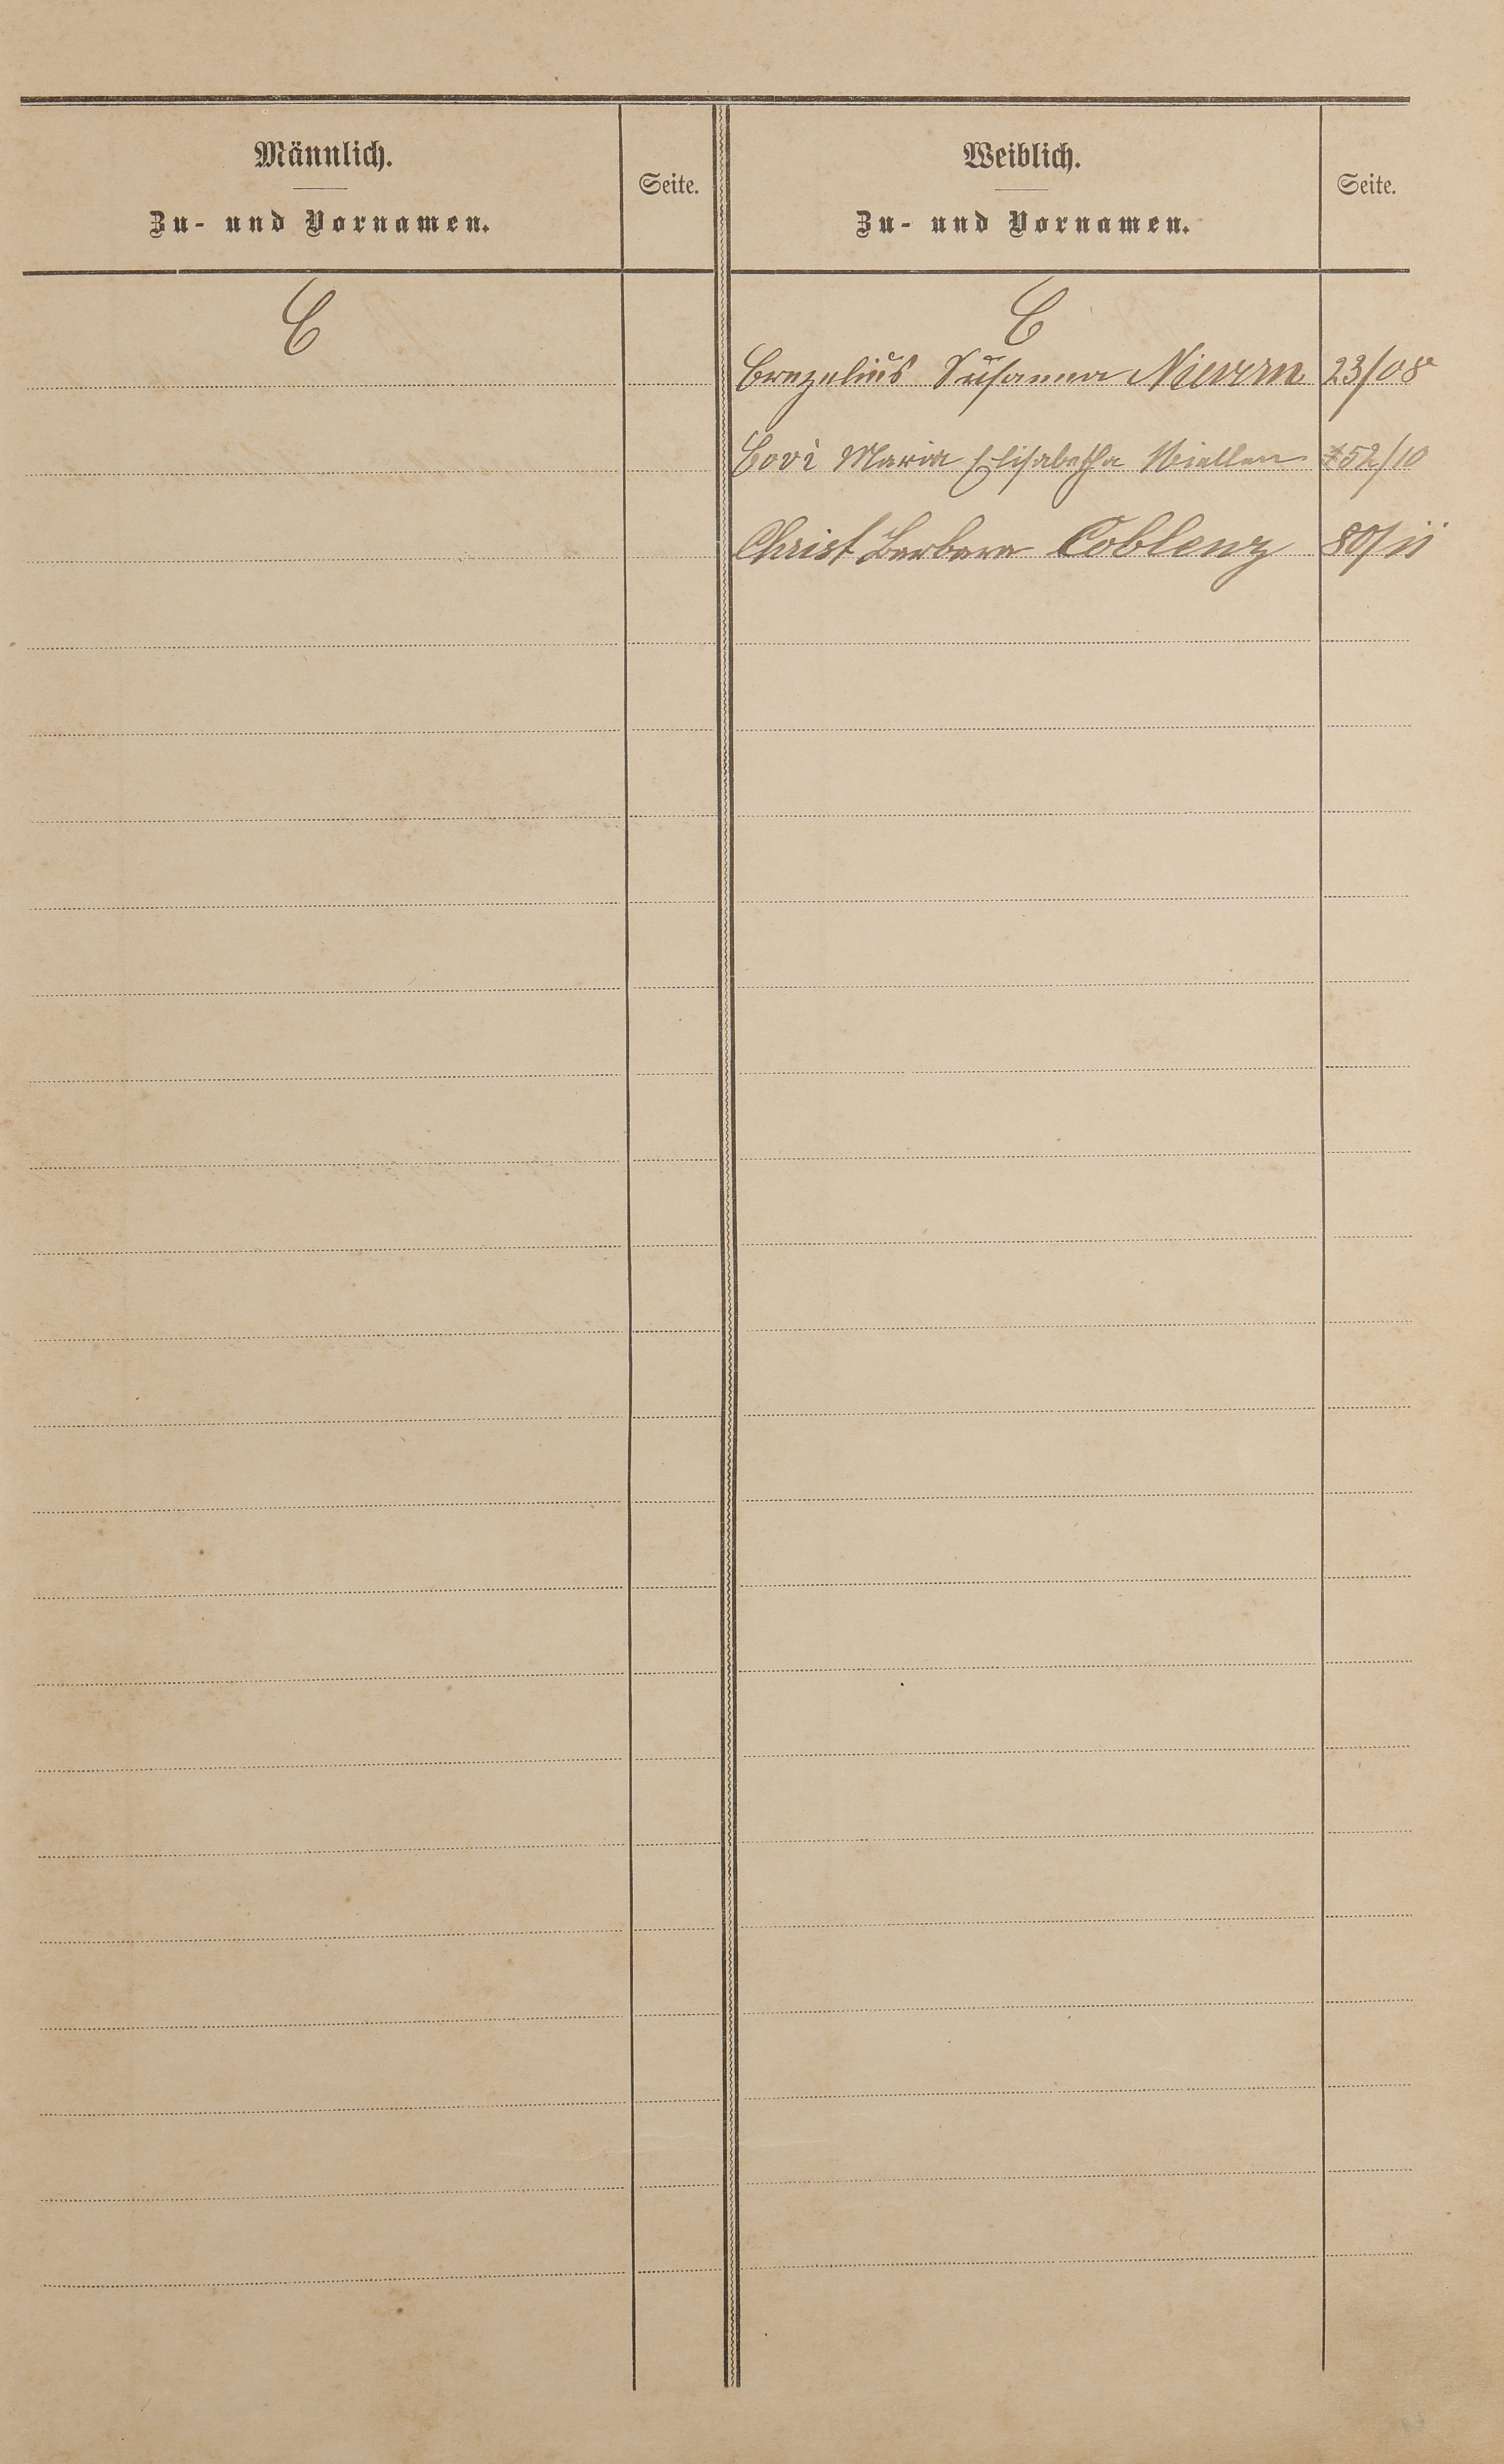 Männlich.
Zu- und Vornamen.
Seite.
Weiblich.
Zu- und Vornamen.
Seite.
C
C
Susanna Nievern 23/08
Covi Maria Elisabetha Miellen 52/10
Christ Barbara Coblenz 80/11